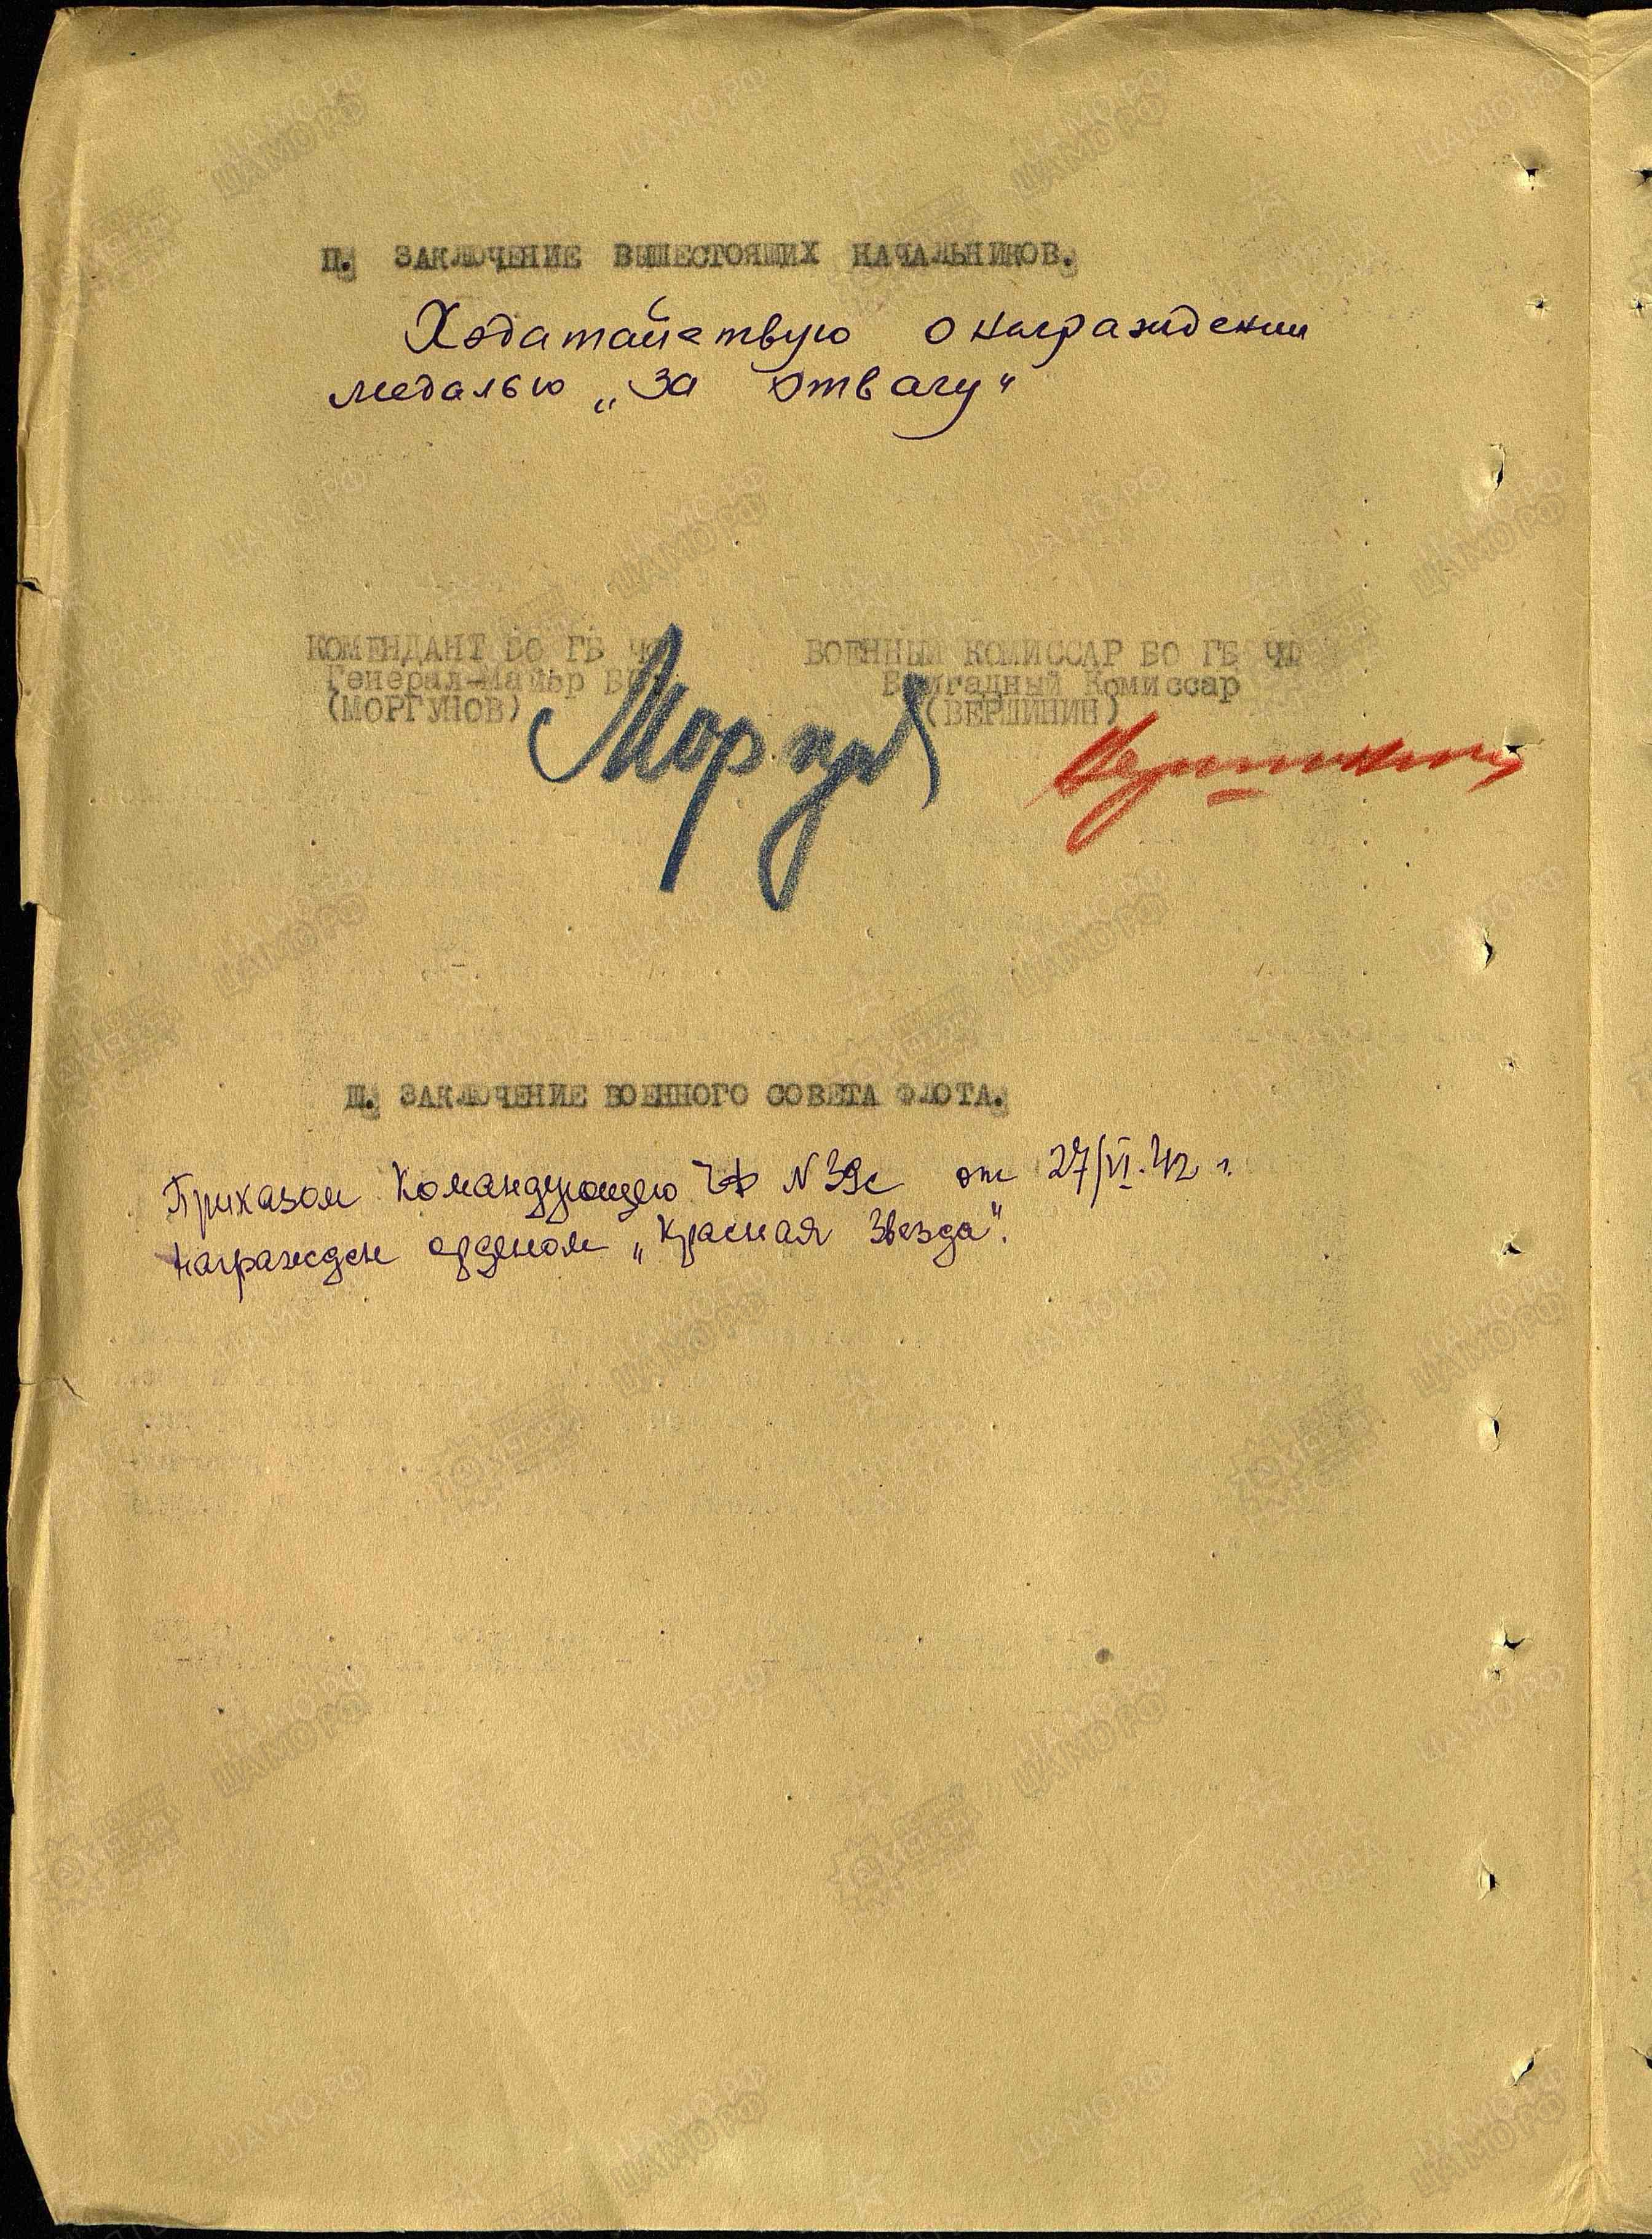 II. ЗАКЛЮЧЕНИЕ ВЫШЕСТОЯЩИХ НАЧАЛЬНИКОВ.
Ходатайствую о награждении
медалью „За Отвагу"
КОМЕНДАНТ БО ГБ ЧФ ВОЕННЫЙ КОМИССАР БО ГБ ЧФ
Генерал-майор Бригадный Комиссар
(МОРГУНОВ) (ВЕРШИНИН)
Моргунов Вершинин
III. ЗАКЛЮЧЕНИЕ ВОЕННОГО СОВЕТА ФЛОТА.
Приказом Командующего ЧФ N 39с от 27/VI.42 г.
награжден орденом „Красная Звезда".